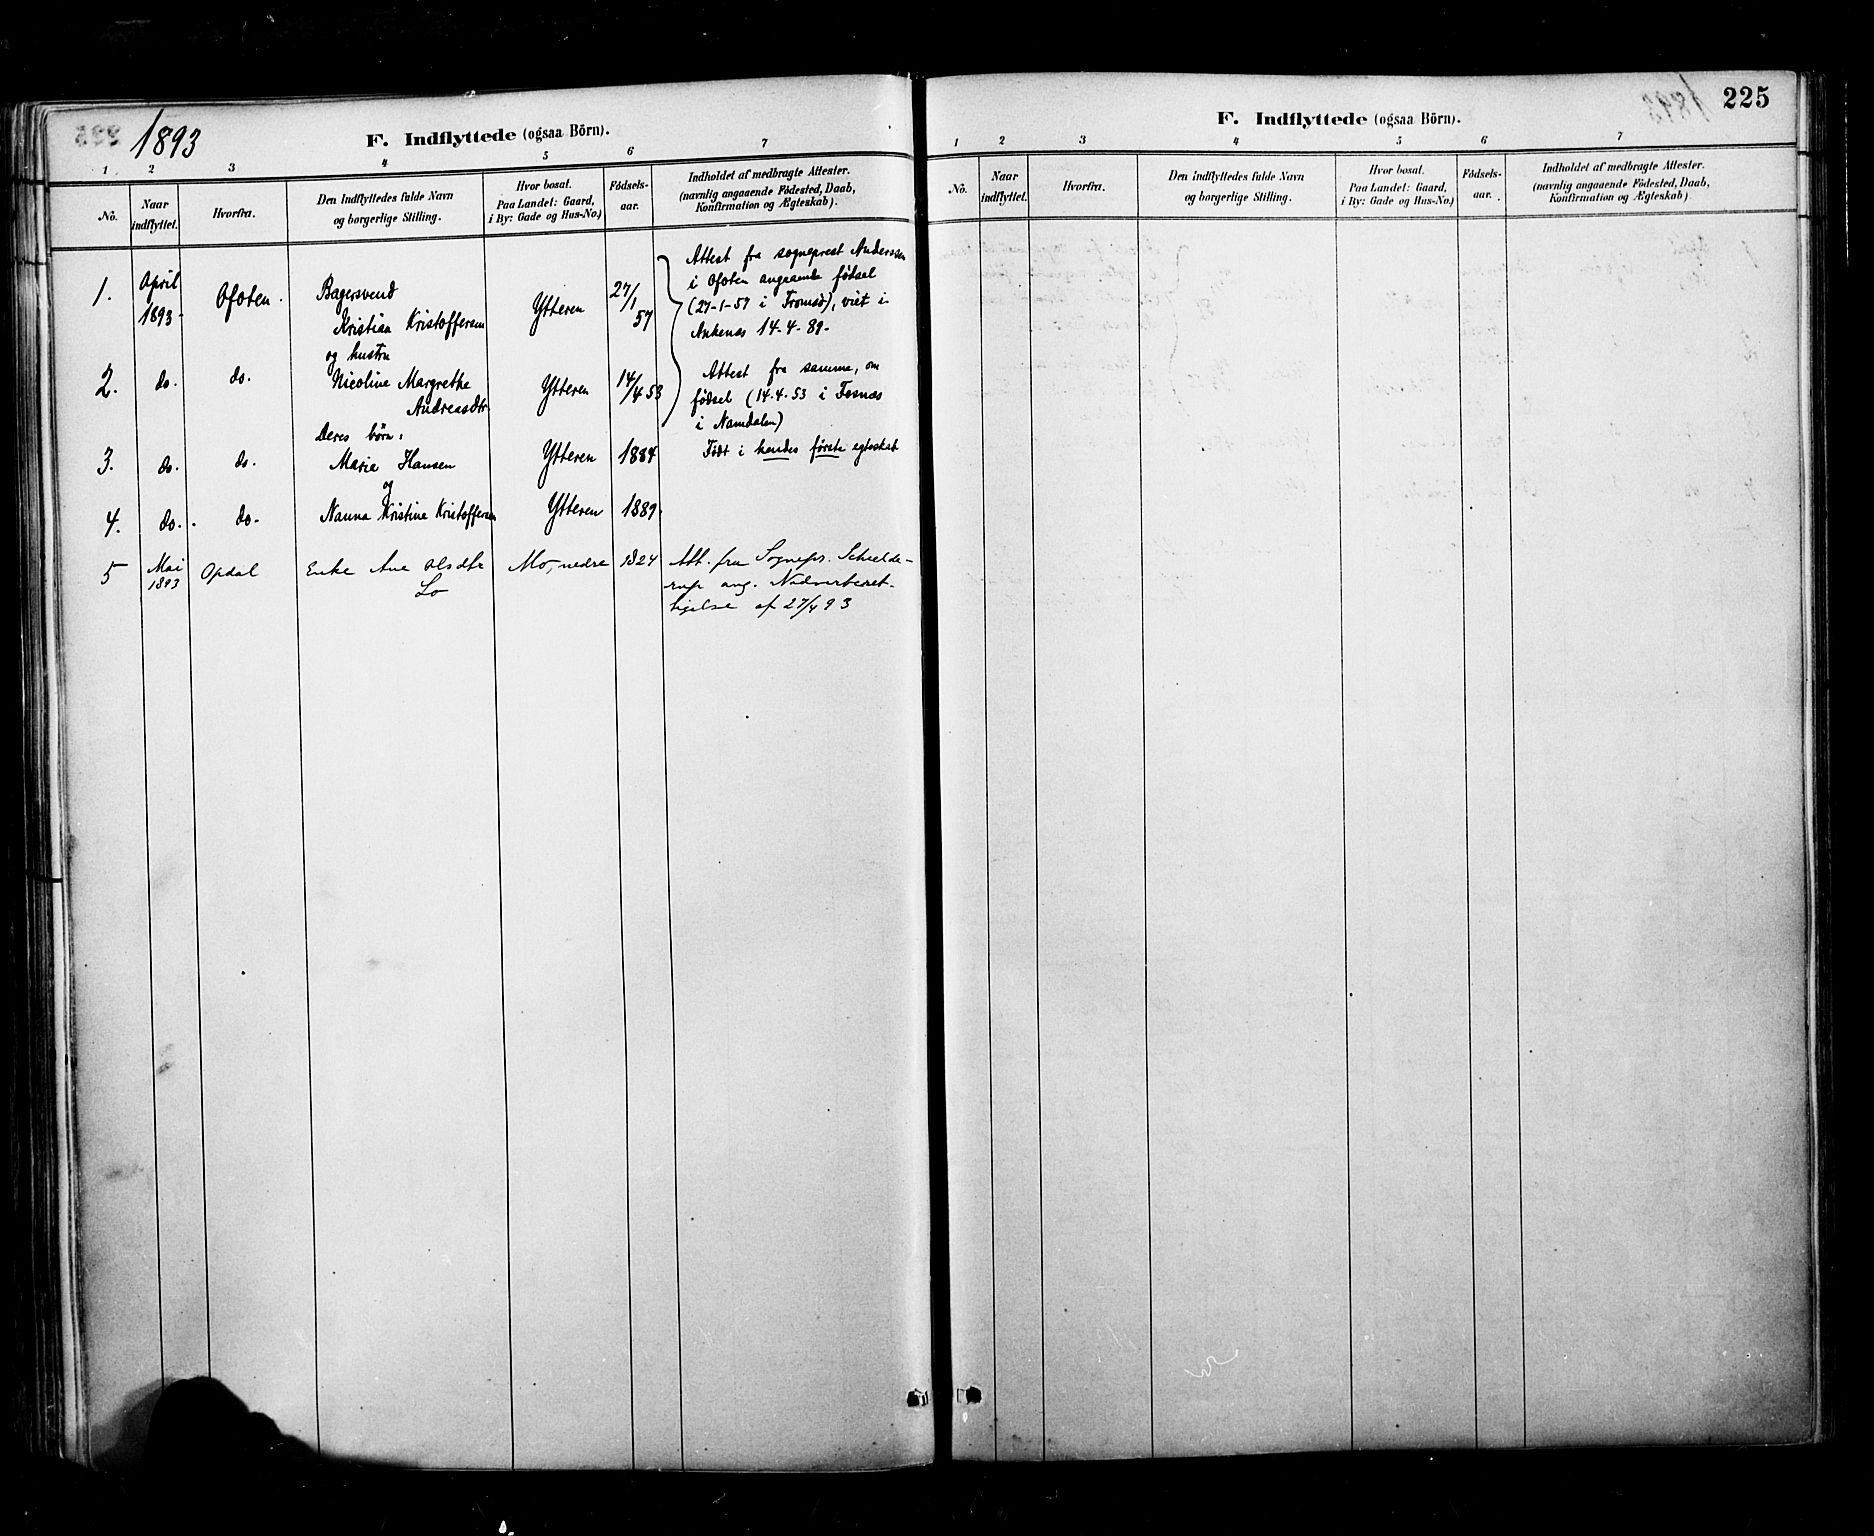 1893
F. Indflyttede (ogsaa Börn).
1 2 3 4 5 6 7
No.
Naar indflyttet.
Hvorfra.
Den Indflyttedes fulde Navn
og borgerlige Stilling.
Hvor bosat.
Paa Landet: Gaard,
i By: Gade og Hus-No.)
Födsels-
aar.
Indholdet af medbragte Attester.
(navnlig angaaende Födested, Daab,
Konfirmation og Ægteskab).
1. April 1893 Ofoten. Bagersvend
Kristian Kristoffersen
Ytteren 27/1 57
Attest fra sogneprest Anderssen
i Ofoten angaaende fødsel
(27-1-57 i Tromsø), viet i
Ankenæs 14-4-89-
og hustru
2. do. do. Nicoline Margrethe
Andreasdtr
Ytteren 14/4 53
Attest fra samme, om
fødsel (14.4.53 i Fosnæs
i Namdalen)
Deres børn:
3. do. do. Maria Hansen Ytteren 1884 Født i hendes første egteskab
og
4. do. do. Nanna Kristine Kristoffersen Ytteren 1889.
5 Mai 1893 Opdal Enke Ane Olsdtr
Lo
Mo, nedre 1824
Att. fra Sognepr. Schielde-
rup ang. Nadverberet-
tigelse af 27/4 93
225
F. Indflyttede (ogsaa Börn).
1 2 3 4 5 6 7
No.
Naar
indflyttet.
Hvorfra.
Den indflyttedes fulde Navn
og borgerlige Stilling.
Hvor bosat.
Paa Landet: Gaard,
i By: Gade og Hus-No.)
Födsels-
aar.
Indholdet af medbragte Attester.
(navnlig angaaende Födested, Daab,
Konfirmation og Ægteskab)